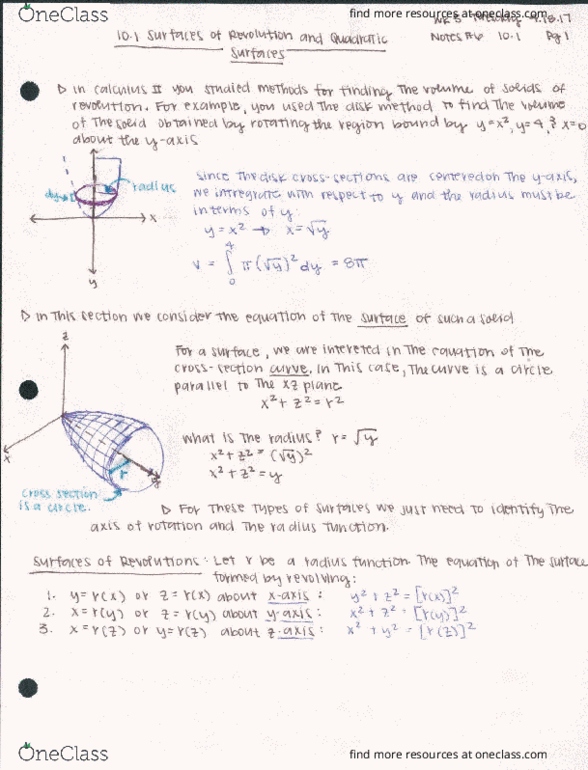 OneClass
find more resources at oneclass.com
10.1 Surfaces of Revolution and Quadratic
Surfaces
Notes #6 10.1 Pg 1
▷ In calculus II you studied methods for finding The volume of solids of
revolution. For example, you used The disk method to find The volume
of The solid obtained by rotating the region bound by y=x², y=4, & x=0
about the y-axis
dy
radius
x
y
since The disk cross-sections are centered on The y-axis,
we intregrate with respect to y and the radius must be
in terms of y:
y = x² → x=√y
V = ∫₀⁴ π(√y)² dy = 8π
▷ In This section we consider the equation of The surface of such a solid
z
x
y
r
cross section
is a circle.
For a surface, we are intereted in The equation of The
cross-section curve. In This case, The curve is a circle
parallel to The xz plane
x² + z² = r²
what is The radius? r = √y
x² + z² = (√y)²
x² + z² = y
▷ For These types of surfaces we just need to identify The
axis of rotation and The radius function.
Surfaces of Revolutions: Let r be a radius function. The equation of The surface
formed by revolving:
1. y=r(x) or z=r(x) about x-axis: y² + z² = [r(x)]²
2. x=r(y) or z=r(y) about y-axis: x² + z² = [r(y)]²
3. x=r(z) or y=r(z) about z-axis: x² + y² = [r(z)]²
OneClass
find more resources at oneclass.com